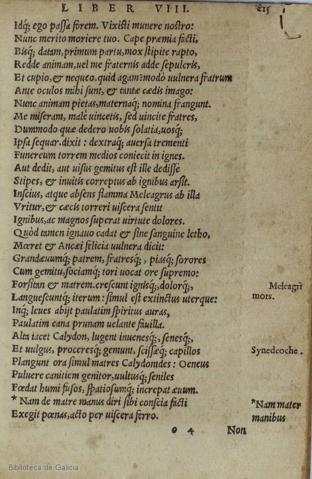 LIBER VIII.
215
Idq; ego passa forem. Vixisti munere nostro:
Nunc merito moriere tuo. Cape præmia facti,
Bisq; datam, primum partu, mox stipite rapto,
Redde animam, uel me fraternis adde sepulcris,
Et cupio, & nequeo. quid agam? modò uulnera fratrum
Ante oculos mihi sunt, & tantæ cædis imago:
Nunc animam pietas, maternaq; nomina frangunt.
Me miseram, malè uincetis, sed uincite fratres,
Dummodo quæ dedero uobis solatia, uosq;
Ipsa sequar. dixit: dextraq; auersa trementi
Funereum torrem medios coniecit in ignes.
Aut dedit, aut uisus gemitus est ille dedisse
Stipes, & inuitis correptus ab ignibus arsit.
Inscius, atque absens flamma Meleagrus ab illa
Vritur, & cæcis torreri uiscera sentit
Ignibus, ac magnos superat uirtute dolores.
Quòd tamen ignauo cadat & sine sanguine letho,
Mœret & Ancæi felicia uulnera dicit:
Grandæuumq; patrem, fratresq;, piasq; sorores
Cum gemitu, sociamq; tori uocat ore supremo:
Forsitan & matrem. crescunt ignisq;, dolorq;,
Meleagri
Languescuntq; iterum: simul est extinctus uterque:
mors.
Inq; leues abijt paulatim spiritus auras,
Paulatim cana prunam uelante fauilla.
Alta iacet Calydon, lugent iuuenesq;, senesq;,
Et uulgus, proceresq; gemunt, scissæq; capillos
Synedoche.
Plangunt ora simul matres Calydonides: Oeneus
Puluere canitiem genitor, uultusq; seniles
Fœdat humi fusos, spatiosumq; increpat æuum.
* Nam de matre manus diri sibi conscia facti
*Nam mater
Exegit pœnas, acto per uiscera ferro.
manibus
o 4
Non
Biblioteca de Galicia